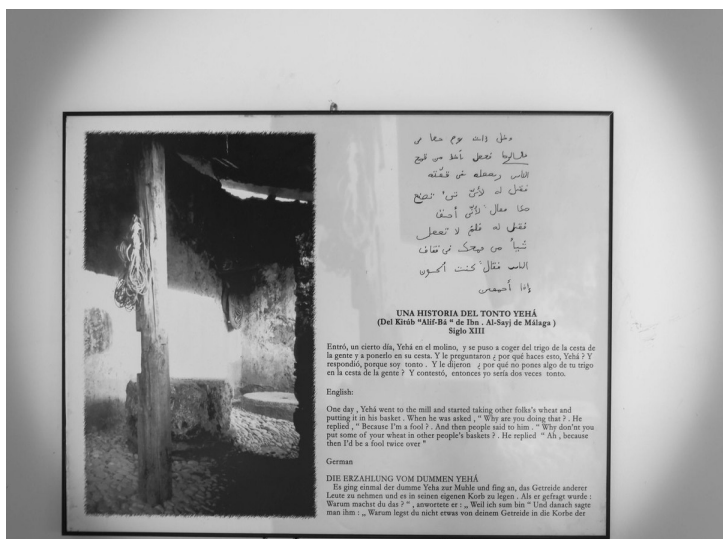 ودخل ذات يوم جحا في
فجعل يأخذ من قمح
الناس ويجعله في قفته
فقيل له لأي شيء تصنع
هذا فقال لأني أحمق
فقيل له فلم لا تجعل
شيأ من قمحك في قفاف
الناس فقال كنت أكون
إذا أحمقين
UNA HISTORIA DEL TONTO YEHÁ
(Del Kitúb "Alif-Bá " de Ibn . Al-Sayj de Málaga )
Siglo XIII
Entró, un cierto día, Yehá en el molino, y se puso a coger del trigo de la cesta de
la gente y a ponerlo en su cesta. Y le preguntaron ¿ por qué haces esto, Yehá ? Y
respondió, porque soy tonto . Y le dijeron ¿ por qué no pones algo de tu trigo
en la cesta de la gente ? Y contestó, entonces yo sería dos veces tonto.
English:
One day , Yehá went to the mill and started taking other folks's wheat and
putting it in his basket . When he was asked , " Why are you doing that ? . He
replied , " Because I'm a fool ? . And then people said to him . " Why don'nt you
put some of your wheat in other people's baskets ? . He replied " Ah , because
then I'd be a fool twice over "
German
DIE ERZAHLUNG VOM DUMMEN YEHÁ
Es ging einmal der dumme Yeha zur Muhle und fing an, das Getreide anderer
Leute zu nehmen und es in seinen eigenen Korb zu legen . Als er gefragt wurde :
Warum machst du das ? " , anwortete er : „ Weil ich sum bin " Und danach sagte
man ihm : „ Warum legst du nicht etwas von deinem Getreide in die Korbe der